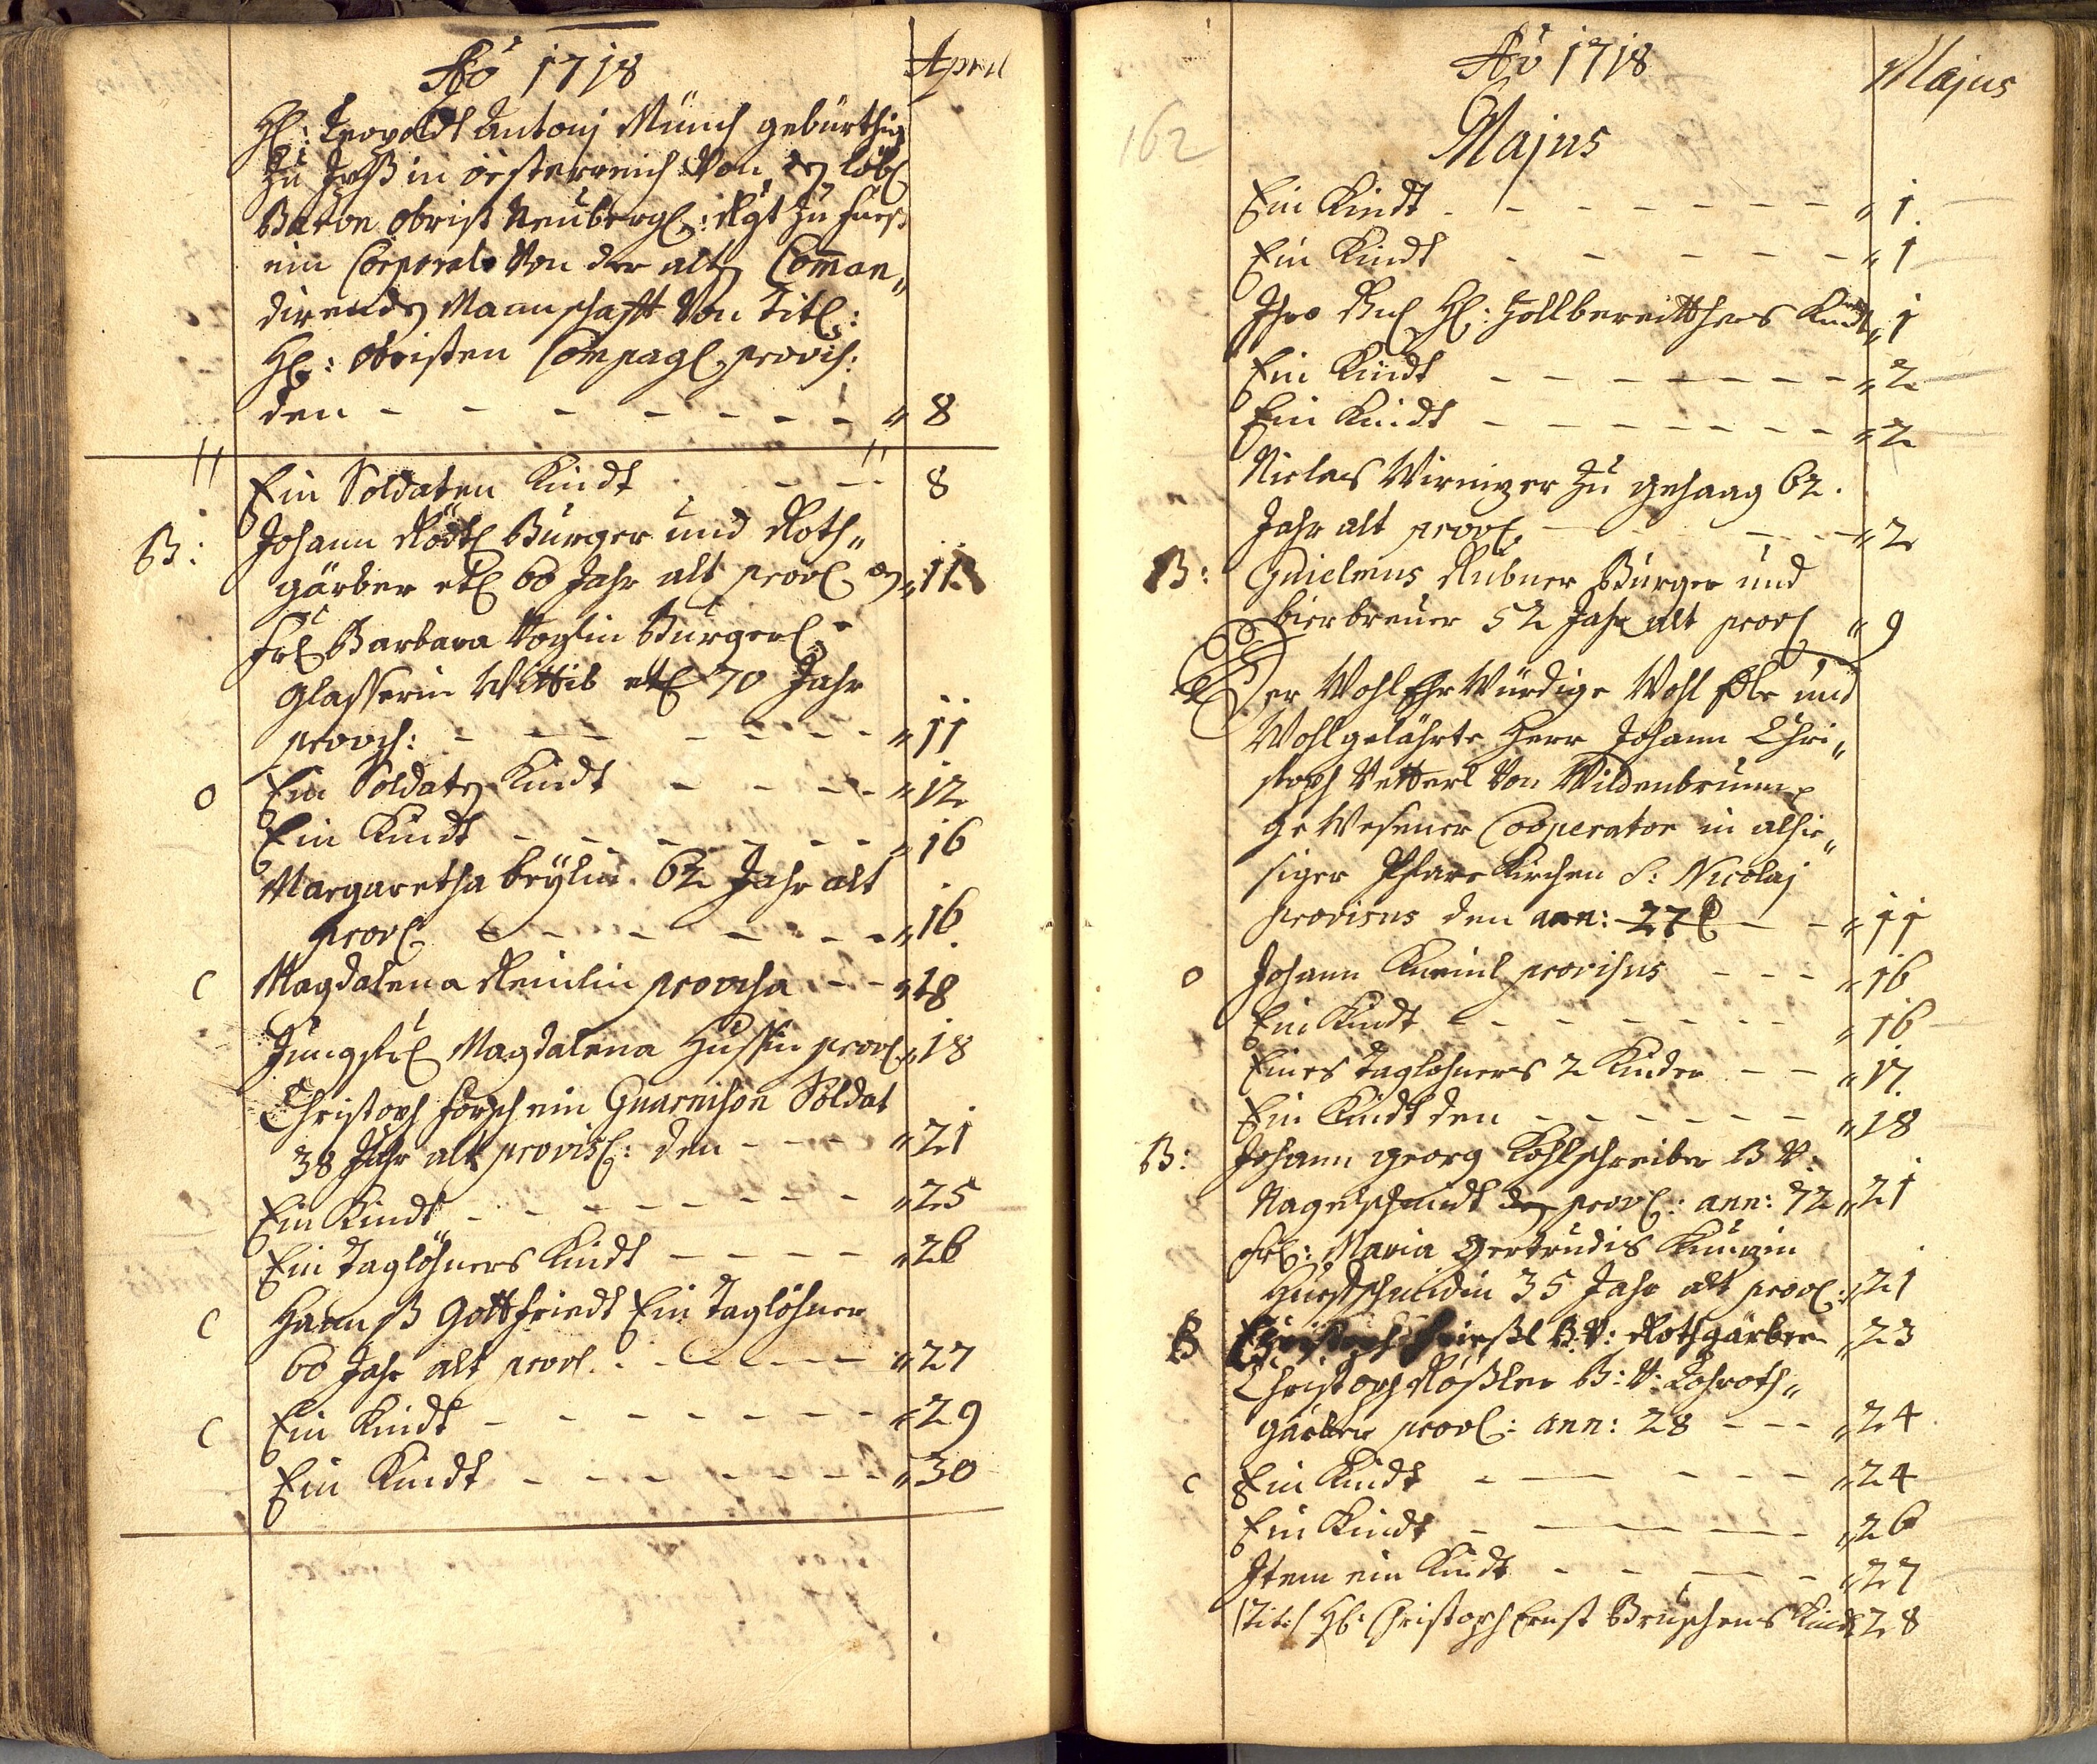 Aõ 1718
April
H: Leopoldt Antonj Münch gebürthig
Zu in össterreich Von dem löbl
Baron obrist Neubergl: Rgt Zu fuess
ein Corporal Von der alten Coman„
direnden Mannschafft Von Titl:
H: obristen Compagl provis:
den - - - - - - - " 8
Ein Soldaten Kindt - - 8
B: Johann Rödtl Burger und Roth„
gärber etl 60 Jahr alt provl den " 11
Frl Barbara Voglin Burgerl:
Glasserin Wittib etl 70 Jahr
provis: - - - - - - " 11
o Ein Soldaten Kindt - - - - " 12
Ein Kindt - - - - - - " 16
Margaretha beÿlin 62 Jahr alt
provl - - - - - - " 16
c Magdalena Reinlin provisa - - " 18
Jungfrl Magdalena Hussin provl " 18
Christoph ein Guarnison Soldat
38 Jahr alt provisl: den - - - " 21
Ein Kindt - - - - - - - " 25
Ein Taglöhners Kindt - - - - " 26
c Hannß Gottfriedt Ein Taglöhner
60 Jahr alt provl. - - - - " 27
c Ein Kindt - - - - - - - " 29
Ein Kindt - - - - - - - " 30
Aõ 1718
Majus
162
Majus
Ein Kindt - - - - - - - " 1
Ein Kindt - - - - - " 1
Ihro Gnl H: Zollbereitthers Kindt " 1
Ein Kindt - - - - - - - " 2
Ein Kindt - - - - - - - " 2
Niclas Wirnizer Zu gehaag 62.
Jahr alt provl - - - " 2
B: Guielmus Rubner Burger und
bierbreuer 52 Jahr alt provl " 9
Der Wohl EhrWürdige Wohl Edle und
Wohlgelährte Herr Johann Chri„
stoph Vetterl Von Wildenbrunn
geWesener Cooperator in alhie„
siger Pfarr Kirchen S: Nicolaj
provisus den ann: 27 - - " 11
o Johann Kneinl provisus - - - " 16
Ein Kindt - - - - - - - " 16
Eines Taglohners 2 Kinder - - " 17.
Ein Kindt den - - - - - - " 18
B: Johann Georg Kohlschreiber B V:
Nagelschmidt den provl: ann: 72 " 21
Frl: Maria Gertrudis
Huefschmidin 35 Jahr alt provl: " 21
B B: V: Rothgärber " 23
Christoph Rößler B: V: Lohroth„
gärber provl: ann: 28 - - - " 24
c Ein Kindt - - - - - - " 24
Ein Kindt - - - - - - " 26
Item ein Kindt - - - - - " 27
/Tit:/ H: Christoph Ernst Bruschens Kindt 28